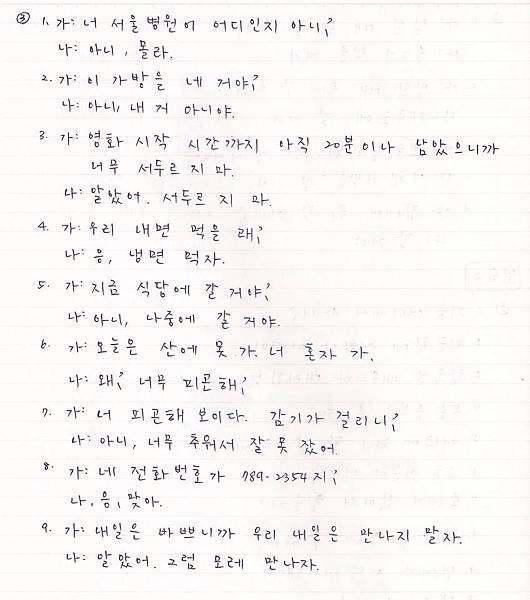 ③ 1. 가: 너 서울 병원이 어디인지 아니?
나: 아니, 몰라.
2. 가: 이 가방을 네 거야?
나: 아니, 내 거 아니야.
3. 가: 영화 시작 시간까지 아직 20분이나 남았으니까
너무 서두르지 마.
나: 알았어. 서두르지 마.
4. 가: 우리 내면 먹을래?
나: 응, 냉면 먹자.
5. 가: 지금 식당에 갈 거야?
나: 아니, 나중에 갈 거야.
6. 가: 오늘은 산에 못 가. 너 혼자 가.
나: 왜? 너무 피곤해?
7. 가: 너 피곤해 보이다. 감기가 걸리니?
나: 아니, 너무 추워서 잘 못 잤어.
8. 가: 네 전화번호가 789-2354지?
나, 응, 맞아.
9. 가: 내일은 바쁘니까 우리 내일은 만나지 말자.
나: 알았어. 그럼 모레 만나자.